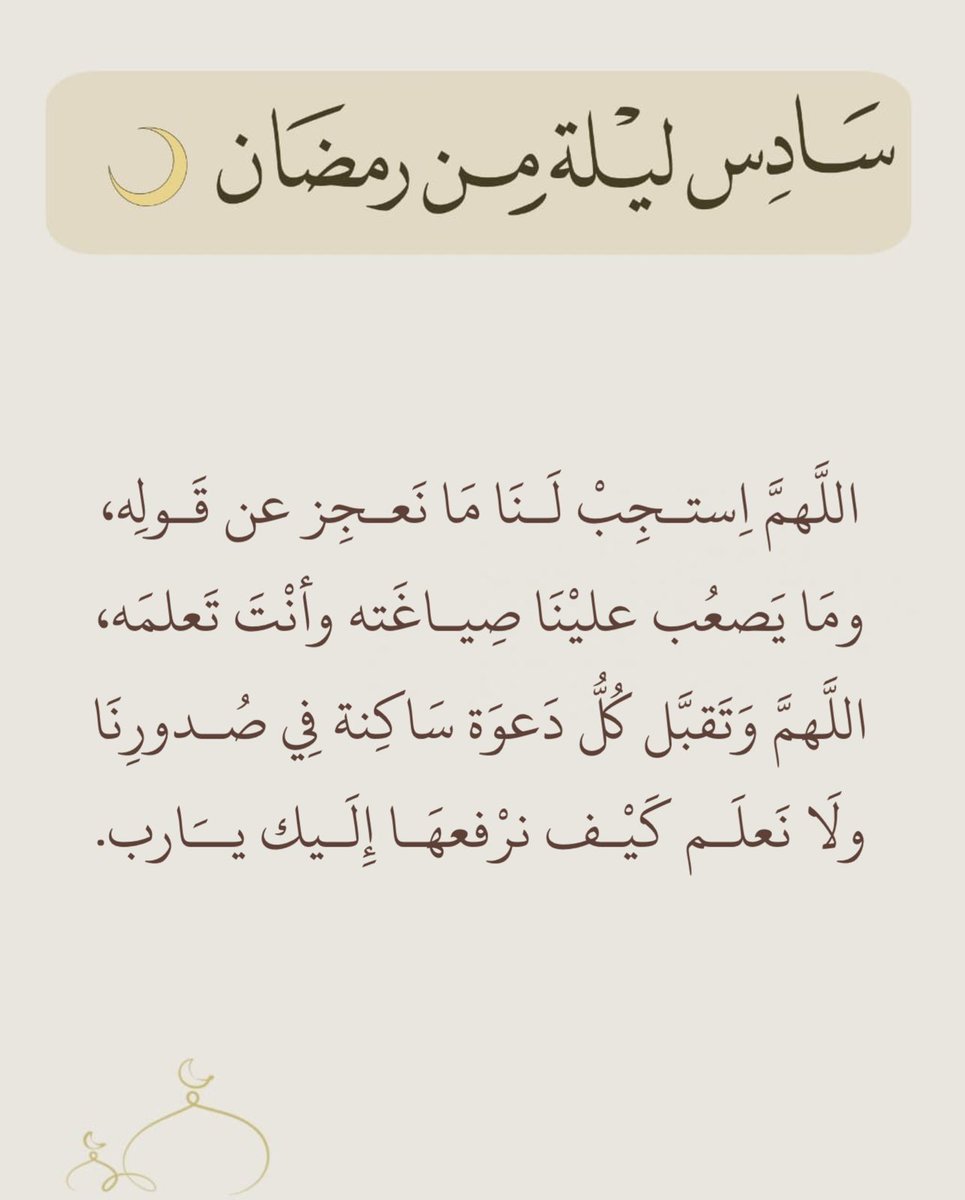 سَـادِس ليْـلة مِـن رمضَان
اللَّهمَّ اِستـجِبْ لَـنَا مَا نَعـجِز عن قَـولِه،
ومَا يَصعُب عليْنَا صِيـاغَته وأنْتَ تَعلمَه،
اللَّهمَّ وَتَقبَّل كُلُّ دَعوَة سَاكِنة فِي صُـدورِنَا
ولَا نَعلَـم كَيْـف نرْفعهَـا إِلَـيك يـَارب.